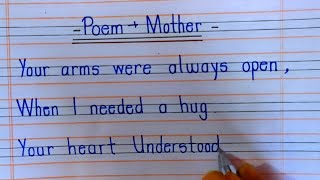 - Poem + Mother -
Your arms were always open,
When I needed a hug
Your heart Understood